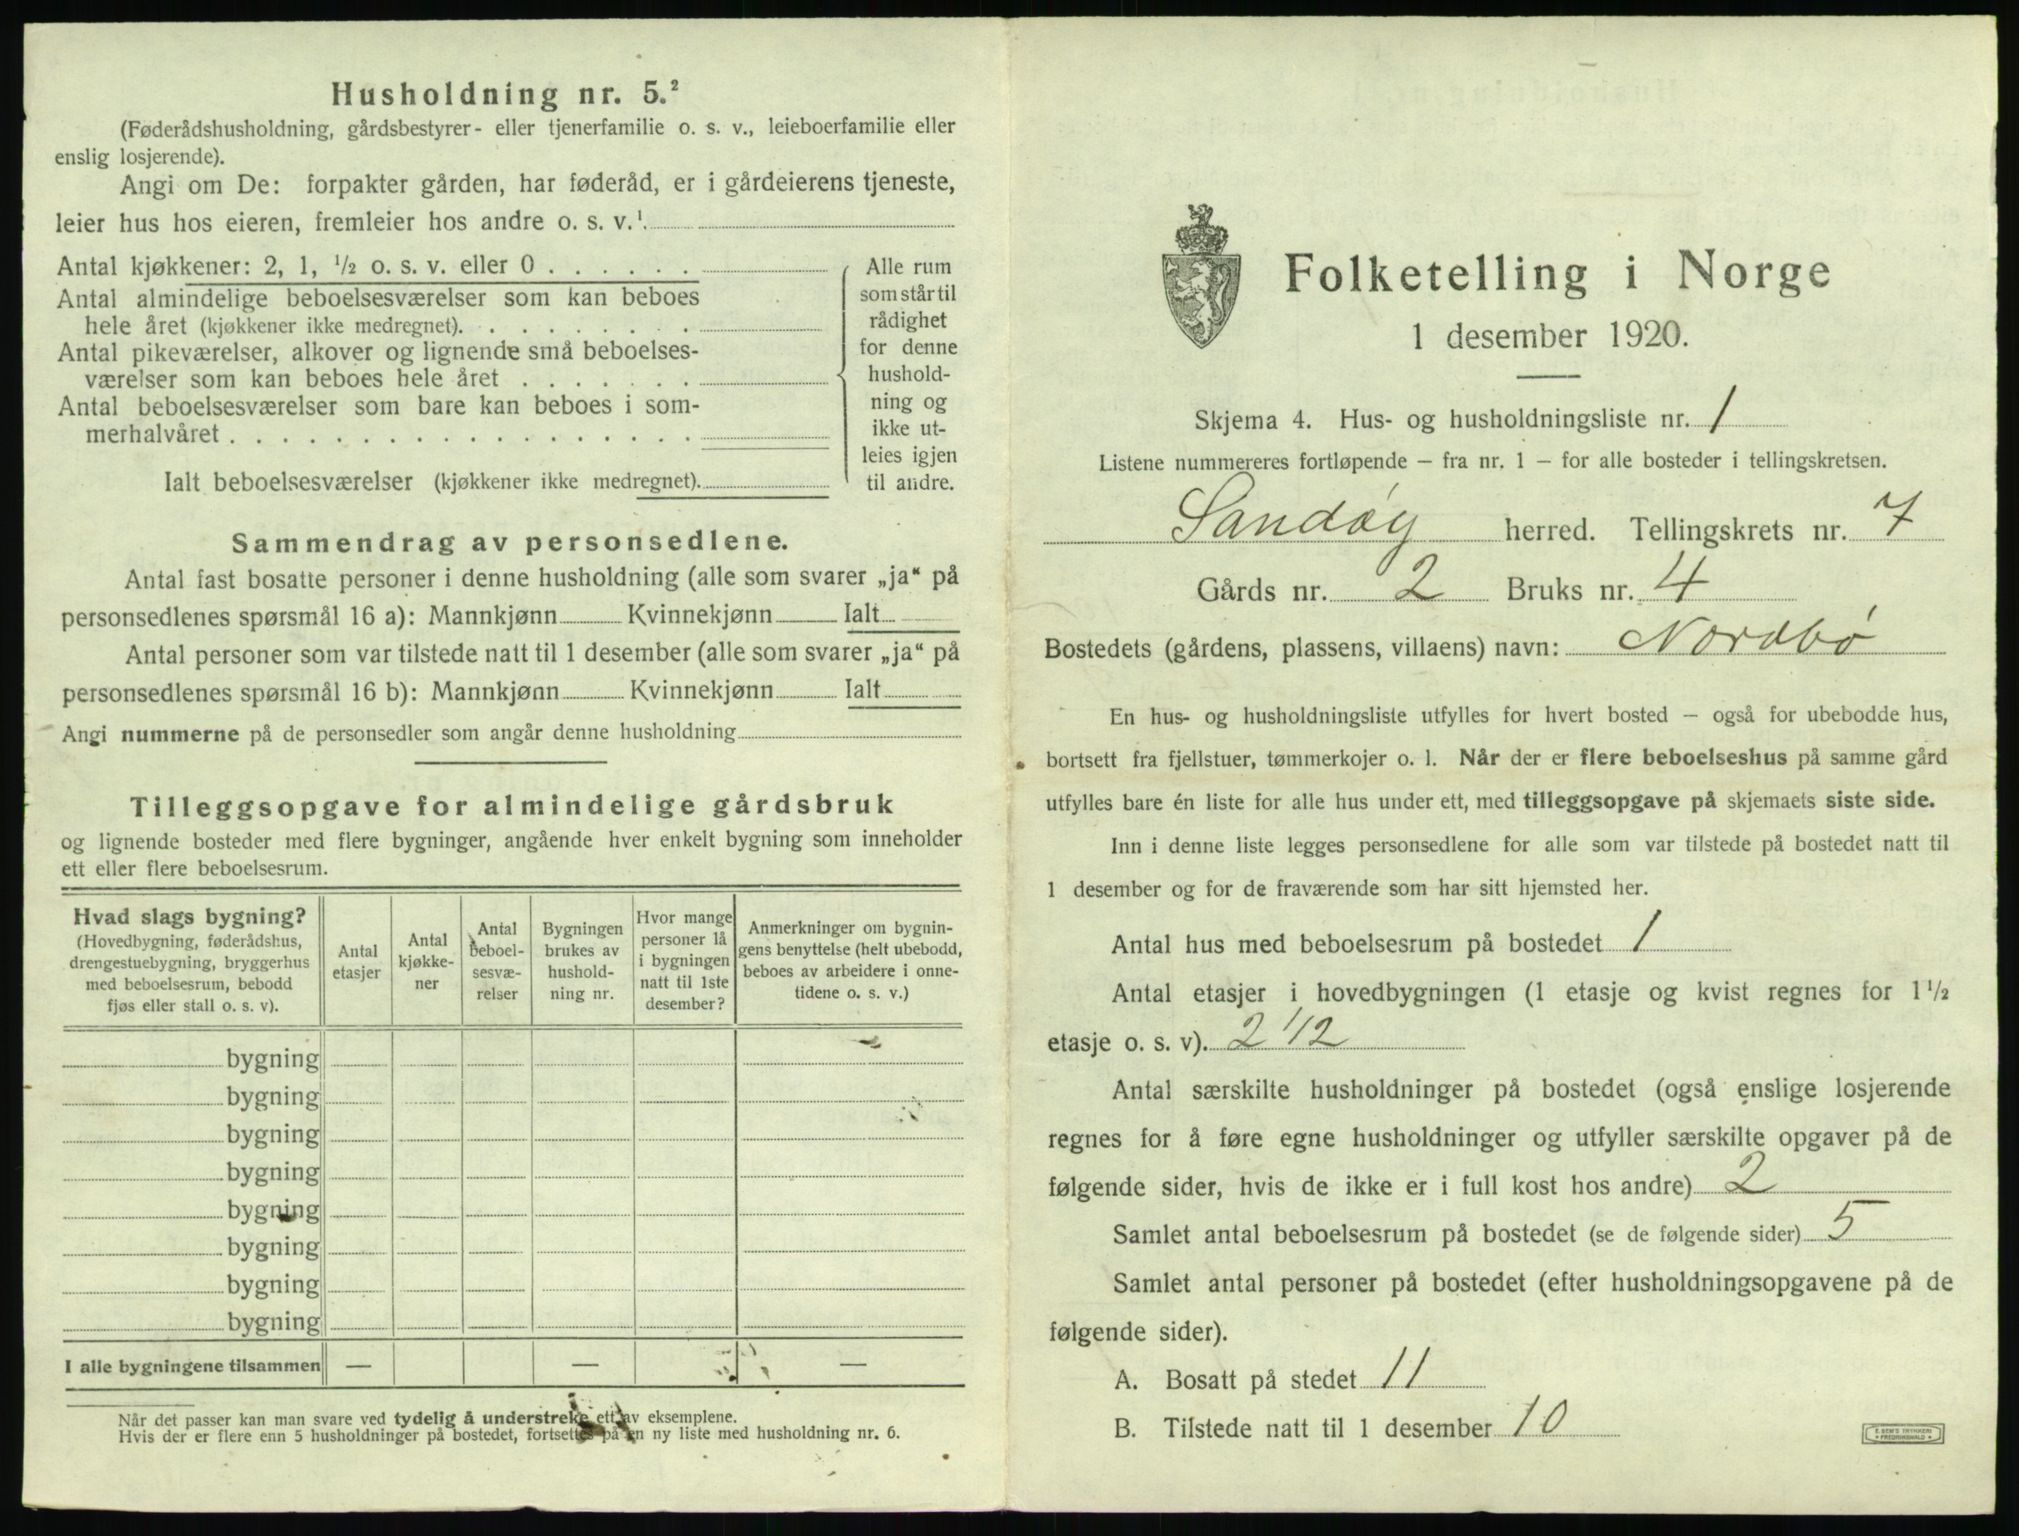 Husholdning nr. 5.²
(Føderådshusholdning, gårdsbestyrer- eller tjenerfamilie o. s. v., leieboerfamilie eller
enslig losjerende).
Angi om De: forpakter gården, har føderåd, er i gårdeierens tjeneste,
leier hus hos eieren, fremleier hos andre o. s. v.¹.
Antal kjøkkener: 2, 1, ½ o. s. v. eller 0 . . . . . .
Antal almindelige beboelsesværelser som kan beboes
hele året (kjøkkener ikke medregnet). . . . . . . . .
Antal pikeværelser, alkover og lignende små beboelses-
værelser som kan beboes hele året . . . . . . .
Antal beboelsesværelser som bare kan beboes i som-
merhalvåret . . . . . . . . . . . . . . . . . .
Ialt beboelsesværelser (kjøkkener ikke medregnet).
Alle rum
som står til
rådighet
for denne
hushold-
ning og
ikke ut-
leies igjen
til andre.
Sammendrag av personsedlene.
Antal fast bosatte personer i denne husholdning (alle som svarer „ja“ på
personsedlenes spørsmål 16 a): Mannkjønn Kvinnekjønn Ialt
Antal personer som var tilstede natt til 1 desember (alle som svarer „ja“ på
personsedlenes spørsmål 16 b): Mannkjønn Kvinnekjønn Ialt
Angi nummerne på de personsedler som angår denne husholdning
Tilleggsopgave for almindelige gårdsbruk
og lignende bosteder med flere bygninger, angående hver enkelt bygning som inneholder
ett eller flere beboelsesrum.
Hvad slags bygning?
(Hovedbygning, føderådshus,
drengestuebygning, bryggerhus
med beboelsesrum, bebodd
fjøs eller stall o. s. v).
Antal
etasjer
Antal
kjøkke-
ner
Antal
beboel-
sesvæ-
relser
Bygningen
brukes av
hushold-
ning nr.
Hvor mange
personer lå
i bygningen
natt til 1ste
desember?
Anmerkninger om bygnin-
gens benyttelse (helt ubebodd,
beboes av arbeidere i onne-
tidene o. s. v.)
bygning
bygning
bygning
bygning
bygning
bygning
bygning
bygning
I alle bygningene tilsammen — — —
Når det passer kan man svare ved tydelig å understreke ett av eksemplene.
Hvis der er flere enn 5 husholdninger på bostedet, fortsettes på en ny liste med husholdning nr. 6.
Folketelling i Norge
1 desember 1920.
Skjema 4. Hus- og husholdningsliste nr. 1
Listene nummereres fortløpende – fra nr. 1 – for alle bosteder i tellingskretsen.
Sandøy herred. Tellingskrets nr. 7
Gårds nr. 2 Bruks nr. 4
Bostedets (gårdens, plassens, villaens) navn: Nordbø
En hus- og husholdningsliste utfylles for hvert bosted – også for ubebodde hus,
bortsett fra fjellstuer, tømmerkojer o. l. Når der er flere beboelseshus på samme gård
utfylles bare én liste for alle hus under ett, med tilleggsopgave på skjemaets siste side.
Inn i denne liste legges personsedlene for alle som var tilstede på bostedet natt til
1 desember og for de fraværende som har sitt hjemsted her.
Antal hus med beboelsesrum på bostedet 1
Antal etasjer i hovedbygningen (1 etasje og kvist regnes for 1½
etasje o. s. v). 2 1/2
Antal særskilte husholdninger på bostedet (også enslige losjerende
regnes for å føre egne husholdninger og utfyller særskilte opgaver på de
følgende sider, hvis de ikke er i full kost hos andre) 2
Samlet antal beboelsesrum på bostedet (se de følgende sider) 5
Samlet antal personer på bostedet (efter husholdningsopgavene på de
følgende sider).
A. Bosatt på stedet 11
B. Tilstede natt til 1 desember 10
E. SEM'S TRYKKERI
FREDRIKSHALD